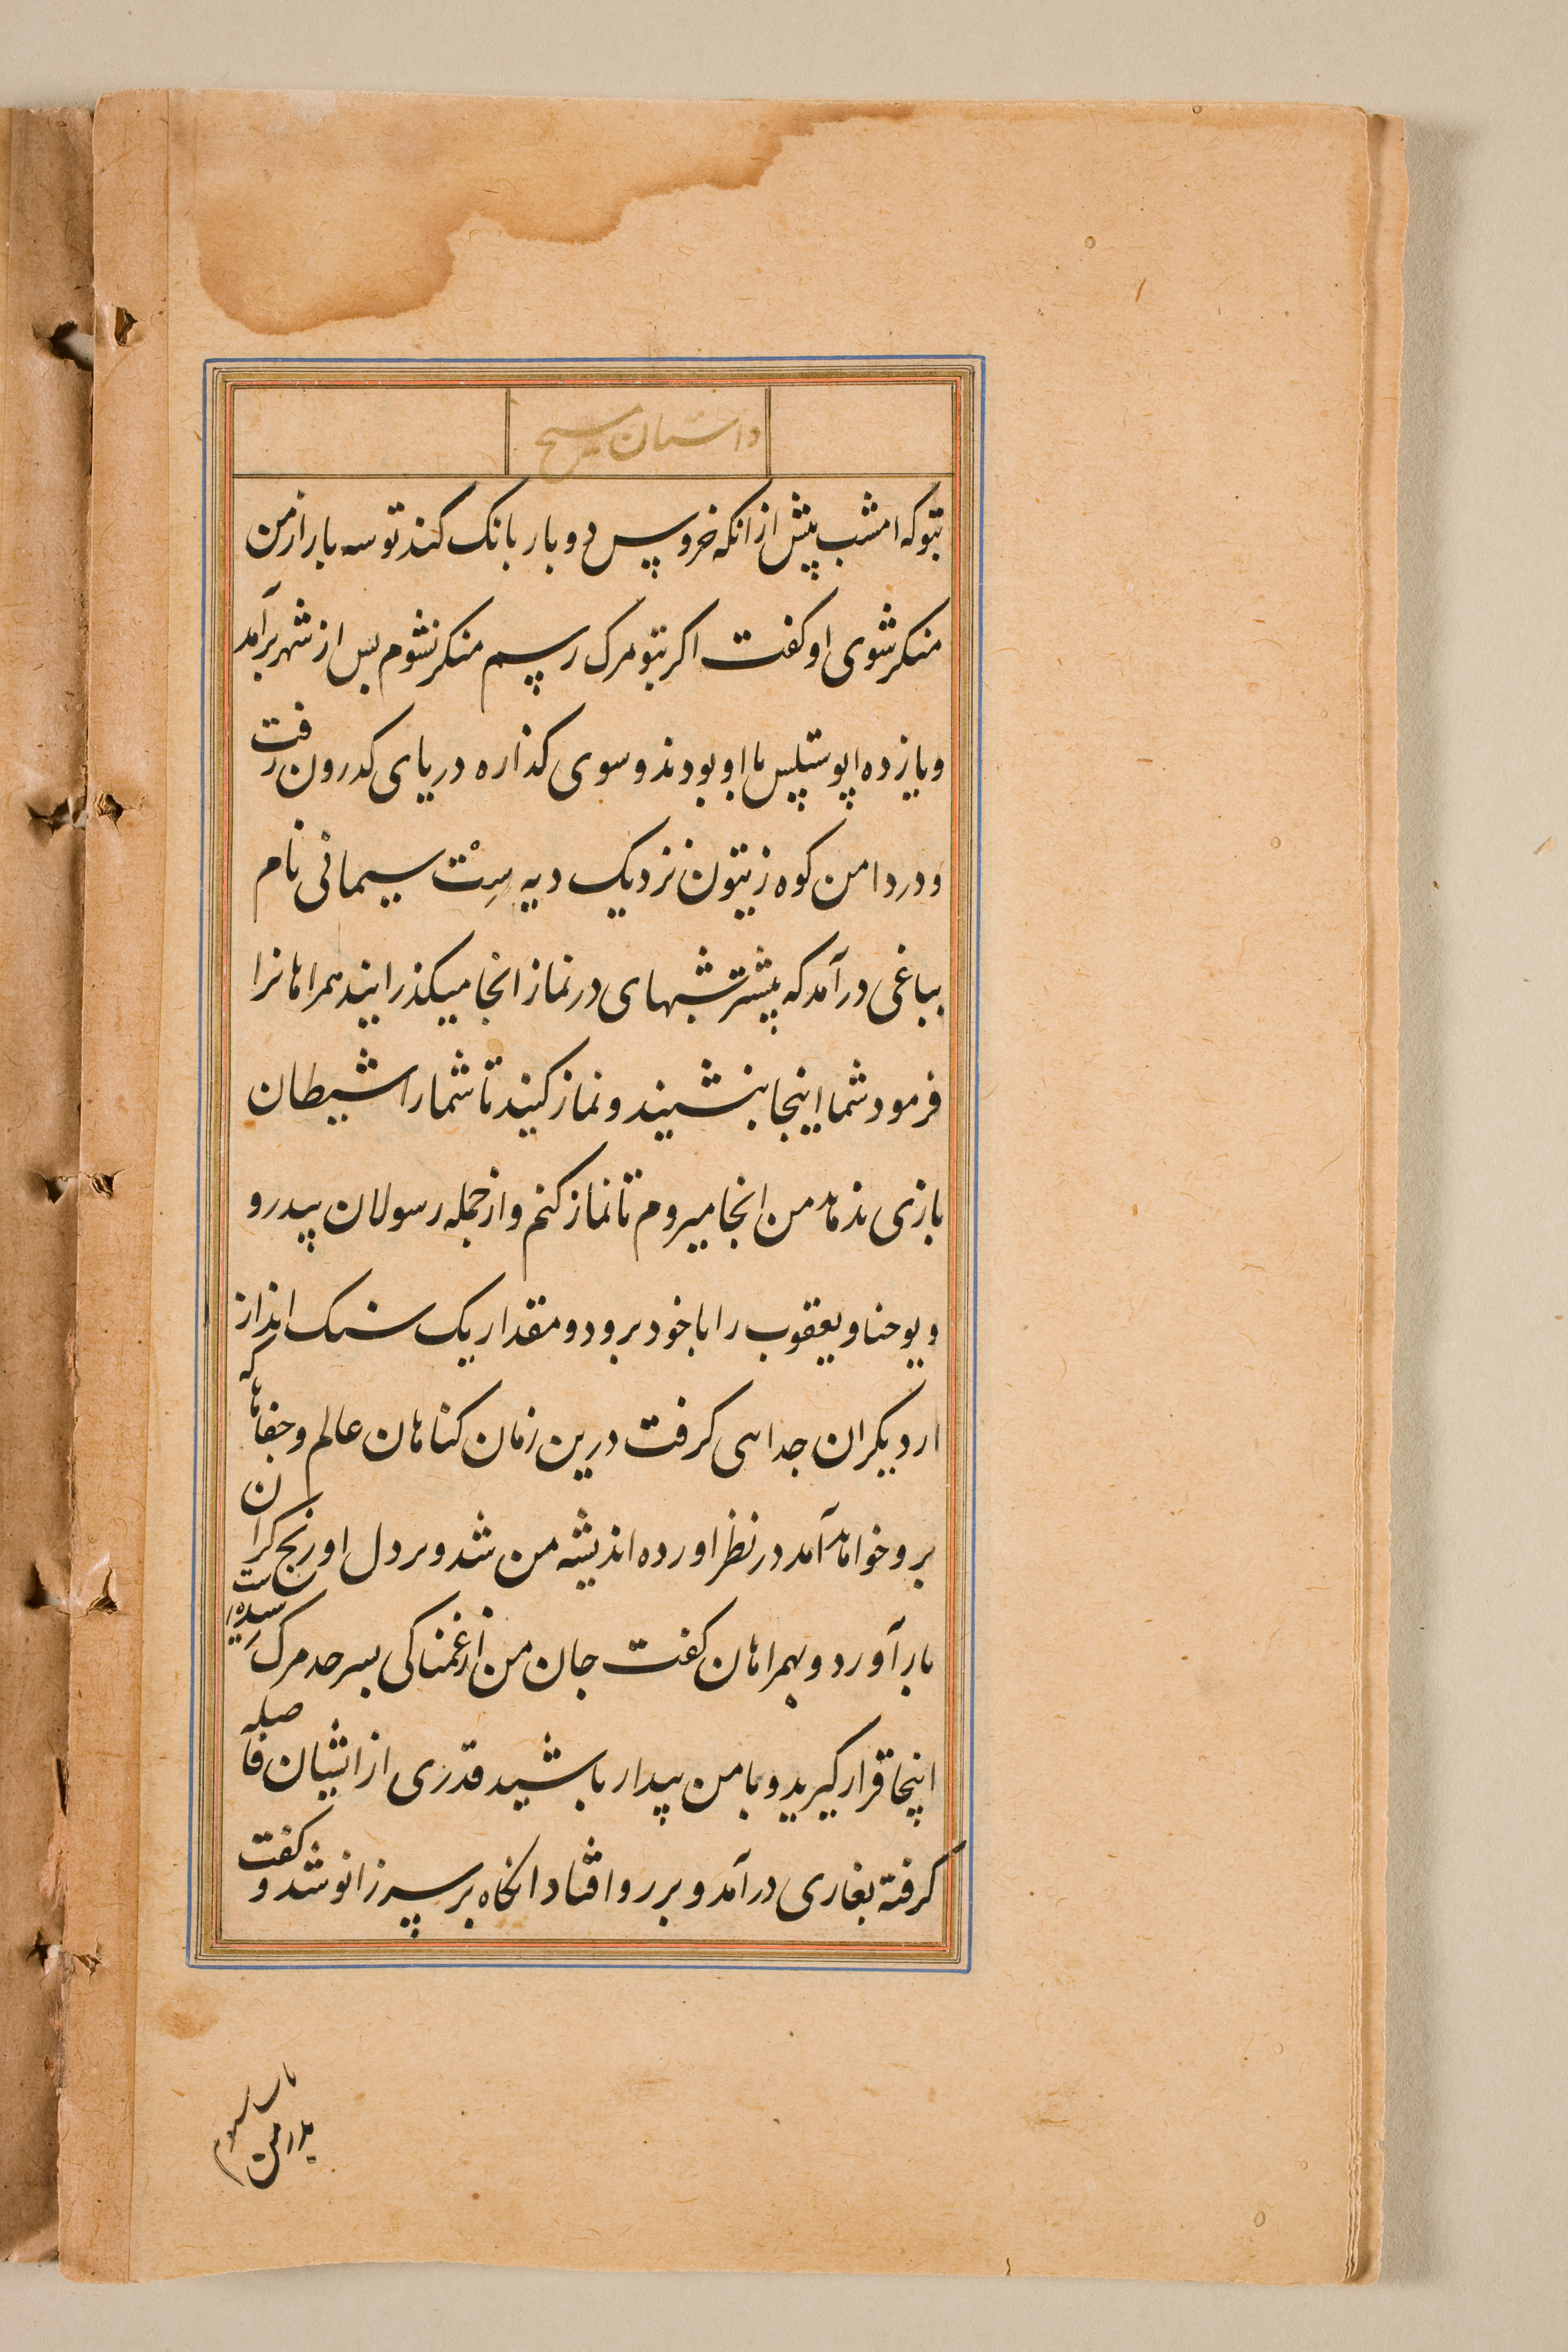 داستان مسیح
بتو که امشب پیش از انکه خروس دو بار بانک کند تو سه بار از من
منکر شوی او کفت اکر بتو مرک رسم منکر نشوم پس از شهر برآمد
و یازده اپوستلس با او بودند و سوی کذاره دریای کدرون رفت
و در دامن کوه زیتون نزدیک دیه سیمانی نام
بباغی درآمد که بیشتر شبهای در نماز انجا میکذرانید همراهانرا
فرمود شما اینجا بنشیند و نماز کنید تا شما را شیطان
بازی ندهد من انجا میروم تا نماز کنم و از جمله رسولان پیدرو
و یوحنا و یعقوب را با خود برود و مقدار یک سنک انداز
از دیکران جداهی کرفت درین زمان کناهان عالم و جفاها که
برو خواهد آمد در نظر اورده اندیشه من شد و بر دل او رنج کران
بار آورد و بهمراهان کفت جان من از غمناکی بسرحد مرک رسیده است
اینجا قرار کیرید و با من بیدار باشید قدری از ایشان فاصله
کرفته بغاری درآمد و بر رو افتاد انکاه بر سر زانو شد و کفت
پدر من